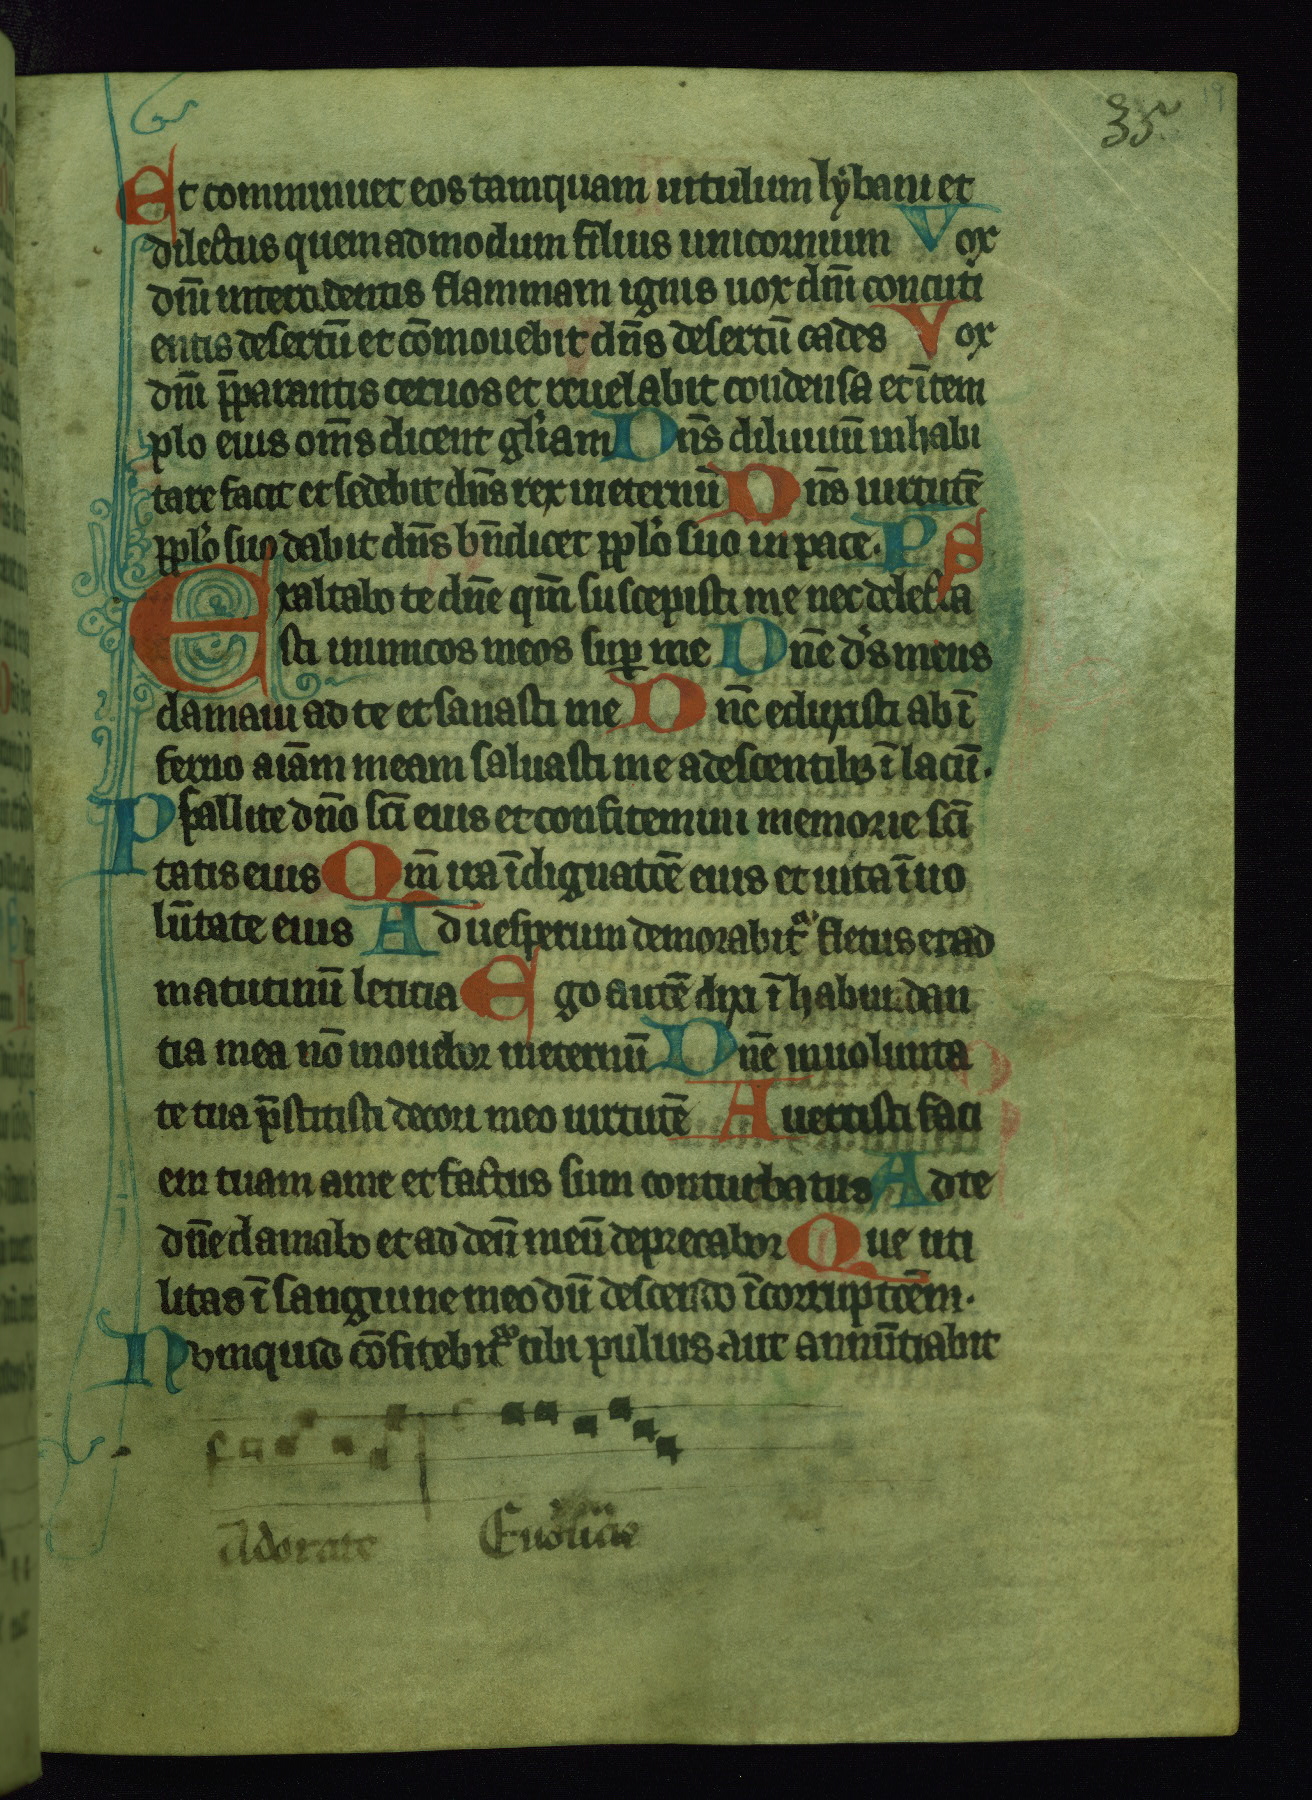 35
Et comminuet eos tamquam uitulum lÿbani et
dilectus quemadmodum filius unicornium Vox
dn̄i intercidentis flammam ignis uox dn̄i concuti
entis desertū et cōmouebit dn̄s desertū cades Vox
dn̄i p̄parantis ceruos et reuelabit condensa et ī tem
plo eius om̄s dicent gl'iam Dn̄s diluuiū inhabi
tare facit et sedebit dn̄s rex in eternū Dn̄s uirtutē
pplo suo dabit dn̄s bn̄dicet pplo suo in pace. PS
Exaltabo te dn̄e qm̄ suscepisti me nec delecta
sti inimicos meos sup me Dn̄e ds meus
clamaui ad te et sanasti me Dn̄e eduxisti ab ī
ferno aīam meam saluasti me a descentibꝫ ī lacū.
Psallite dn̄o sc̄i eius et confitemini memorie sc̄i
tatis eius Qm̄ ira ī dignatōe eius et uita ī uo
lūtate eius Ad uesperum demorabitᵃ fletus et ad
matutinū leticia Ego autē dixi ī habundan
tia mea nō mouebor in eternū Dn̄e in uolunta
te tua p̄stitisti decori meo uirtutē Auertisti faci
em tuam a me et factus sum conturbatus Ad te
dn̄e clamabo et ad deū meū deprecabor Que uti
litas ī sanguine meo dū descendo ī corruptōem.
Numquid cōfitebit tibi puluis aut annūtiabit
Adorate